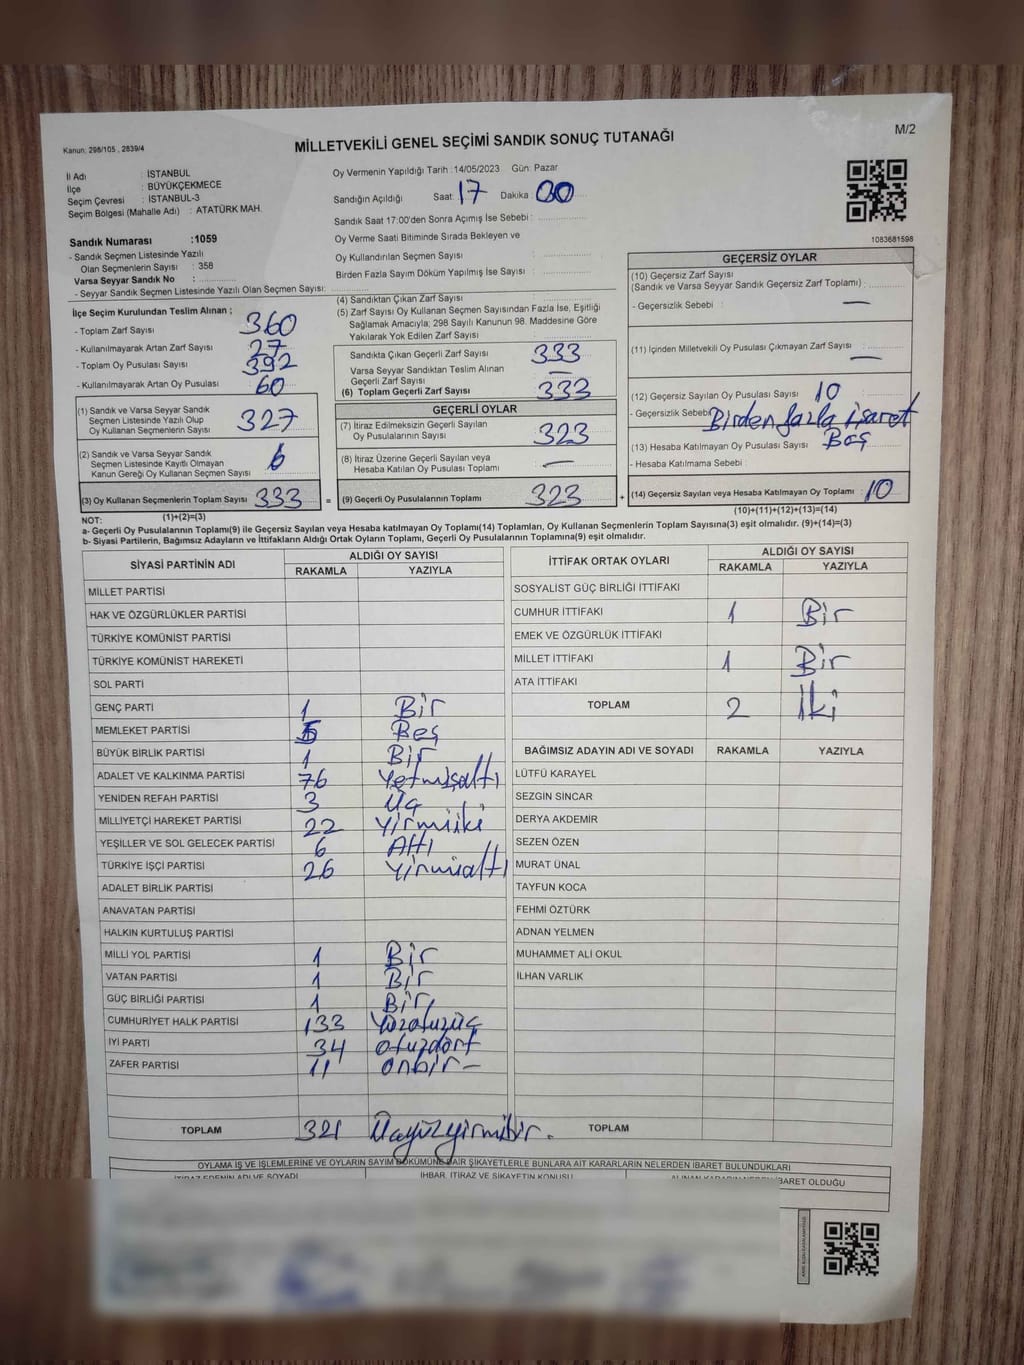 M/2
Kanun: 298/105 , 2839/4
MİLLETVEKİLİ GENEL SEÇİMİ SANDIK SONUÇ TUTANAĞI
İl Adı : İSTANBUL
İlçe : BÜYÜKÇEKMECE
Seçim Çevresi : İSTANBUL-3
Seçim Bölgesi (Mahalle Adı) : ATATÜRK MAH.
Sandık Numarası :1059
- Sandık Seçmen Listesinde Yazılı
Olan Seçmenlerin Sayısı : 358
Varsa Seyyar Sandık No :
- Seyyar Sandık Seçmen Listesinde Yazılı Olan Seçmen Sayısı:
Oy Vermenin Yapıldığı Tarih :14/05/2023 Gün: Pazar
Sandığın Açıldığı Saat: 17 Dakika 00
Sandık Saat 17:00'den Sonra Açımış İse Sebebi :
Oy Verme Saati Bitiminde Sırada Bekleyen ve
Oy Kullandırılan Seçmen Sayısı :
Birden Fazla Sayım Döküm Yapılmış İse Sayısı :
1083681598
İlçe Seçim Kurulundan Teslim Alınan ;
- Toplam Zarf Sayısı 360
- Kullanılmayarak Artan Zarf Sayısı 27
- Toplam Oy Pusulası Sayısı 392
- Kullanılmayarak Artan Oy Pusulası 60
(1) Sandık ve Varsa Seyyar Sandık
Seçmen Listesinde Yazılı Olup
Oy Kullanan Seçmenlerin Sayısı 327
(2) Sandık ve Varsa Seyyar Sandık
Seçmen Listesinde Kayıtlı Olmayan
Kanun Gereği Oy Kullanan Seçmen Sayısı 6
(3) Oy Kullanan Seçmenlerin Toplam Sayısı 333 =
(1)+(2)=(3)
(4) Sandıktan Çıkan Zarf Sayısı :
(5) Zarf Sayısı Oy Kullanan Seçmen Sayısından Fazla İse, Eşitliği
Sağlamak Amacıyla; 298 Sayılı Kanunun 98. Maddesine Göre
Yakılarak Yok Edilen Zarf Sayısı :
Sandıkta Çıkan Geçerli Zarf Sayısı 333
Varsa Seyyar Sandıktan Teslim Alınan
Geçerli Zarf Sayısı —
(6) Toplam Geçerli Zarf Sayısı 333
GEÇERLİ OYLAR
(7) İtiraz Edilmeksizin Geçerli Sayılan
Oy Pusulalarının Sayısı 323
(8) İtiraz Üzerine Geçerli Sayılan veya
Hesaba Katılan Oy Pusulası Toplamı —
(9) Geçerli Oy Pusulalarının Toplamı 323 +
GEÇERSİZ OYLAR
(10) Geçersiz Zarf Sayısı
(Sandık ve Varsa Seyyar Sandık Geçersiz Zarf Toplamı) :
- Geçersizlik Sebebi : —
(11) İçinden Milletvekili Oy Pusulası Çıkmayan Zarf Sayısı : —
(12) Geçersiz Sayılan Oy Pusulası Sayısı : 10
- Geçersizlik Sebebi Birden fazla işaret
(13) Hesaba Katılmayan Oy Pusulası Sayısı : Boş
- Hesaba Katılmama Sebebi :
(14) Geçersiz Sayılan veya Hesaba Katılmayan Oy Toplamı : 10
(10)+(11)+(12)+(13)=(14)
NOT:
a- Geçerli Oy Pusulalarının Toplamı(9) ile Geçersiz Sayılan veya Hesaba katılmayan Oy Toplamı(14) Toplamları, Oy Kullanan Seçmenlerin Toplam Sayısına(3) eşit olmalıdır. (9)+(14)=(3)
b- Siyasi Partilerin, Bağımsız Adayların ve İttifakların Aldığı Ortak Oyların Toplamı, Geçerli Oy Pusulalarının Toplamına(9) eşit olmalıdır.
SİYASİ PARTİNİN ADI ALDIĞI OY SAYISI
RAKAMLA YAZIYLA
MİLLET PARTİSİ
HAK VE ÖZGÜRLÜKLER PARTİSİ
TÜRKİYE KOMÜNİST PARTİSİ
TÜRKİYE KOMÜNİST HAREKETİ
SOL PARTİ
GENÇ PARTİ 1 Bir
MEMLEKET PARTİSİ 5 Beş
BÜYÜK BİRLİK PARTİSİ 1 Bir
ADALET VE KALKINMA PARTİSİ 76 Yetmişaltı
YENİDEN REFAH PARTİSİ 3 Üç
MİLLİYETÇİ HAREKET PARTİSİ 22 Yirmiiki
YEŞİLLER VE SOL GELECEK PARTİSİ 6 Altı
TÜRKİYE İŞÇİ PARTİSİ 26 Yirmialtı
ADALET BİRLİK PARTİSİ
ANAVATAN PARTİSİ
HALKIN KURTULUŞ PARTİSİ
MİLLİ YOL PARTİSİ 1 Bir
VATAN PARTİSİ 1 Bir
GÜÇ BİRLİĞİ PARTİSİ 1 Bir
CUMHURİYET HALK PARTİSİ 133 Yüzotuzüç
İYİ PARTİ 34 otuzdört
ZAFER PARTİSİ 11 onbir —
TOPLAM 321 Üçyüzyirmibir.
İTTİFAK ORTAK OYLARI ALDIĞI OY SAYISI
RAKAMLA YAZIYLA
SOSYALİST GÜÇ BİRLİĞİ İTTİFAKI
CUMHUR İTTİFAKI 1 Bir
EMEK VE ÖZGÜRLÜK İTTİFAKI
MİLLET İTTİFAKI 1 Bir
ATA İTTİFAKI
TOPLAM 2 İki
BAĞIMSIZ ADAYIN ADI VE SOYADI RAKAMLA YAZIYLA
LÜTFÜ KARAYEL
SEZGİN SİNCAR
DERYA AKDEMİR
SEZEN ÖZEN
MURAT ÜNAL
TAYFUN KOCA
FEHMİ ÖZTÜRK
ADNAN YELMEN
MUHAMMET ALİ OKUL
İLHAN VARLIK
TOPLAM
OYLAMA İŞ VE İŞLEMLERİNE VE OYLARIN SAYIM DÖKÜMÜNE DAİR ŞİKAYETLERLE BUNLARA AİT KARARLARIN NELERDEN İBARET BULUNDUKLARI
İTİRAZ EDENİN ADI VE SOYADI İHBAR, İTİRAZ VE ŞİKAYETİN KONUSU İBARET OLDUĞU